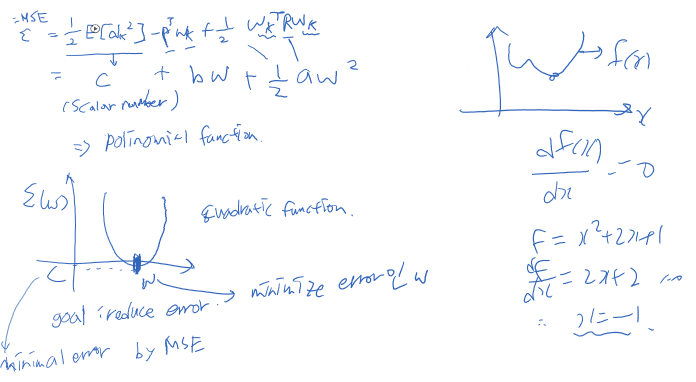 = MSE
ξ = 1/2 E[dk²] - pᵀwk + 1/2 wkᵀRwk
= C + bw + 1/2 aw²
(scalar number)
=> polinomial function.
ξ(w)
quadratic function.
C
w
minimize error of w
goal : reduce error.
minimal error by MSE
f(x)
x
df(x)/dx = 0
f = x²+2x+1
df/dx = 2x+2
x = -1